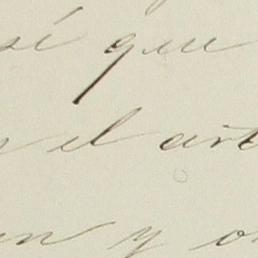 sé que
el arte
y